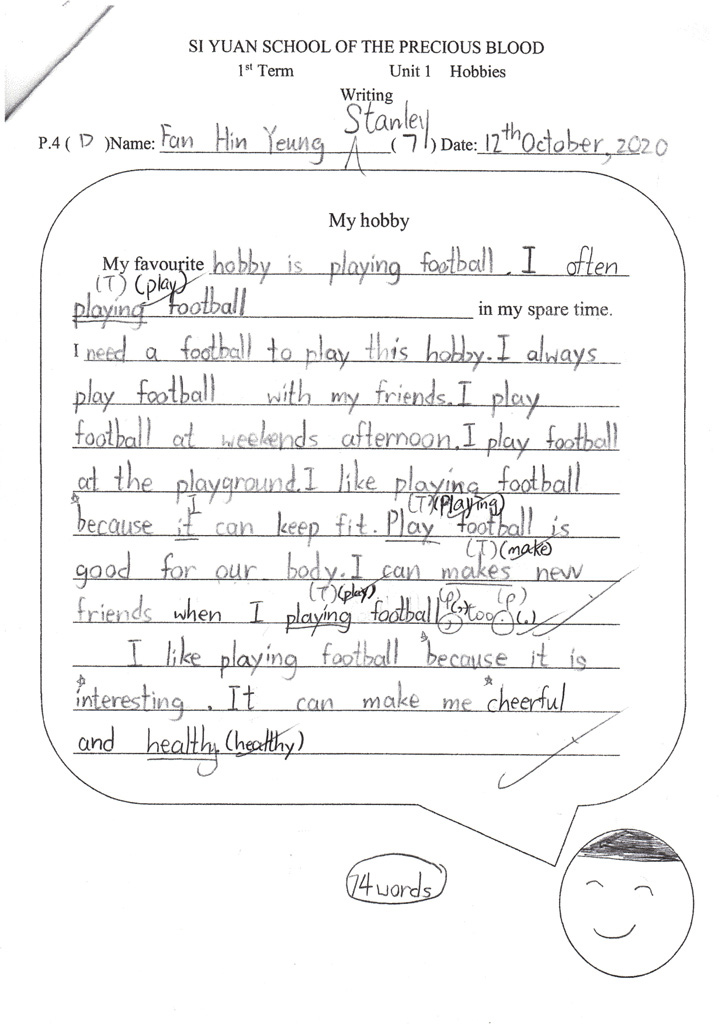 SI YUAN SCHOOL OF THE PRECIOUS BLOOD
1st Term Unit 1 Hobbies
Writing
Stanley
P.4 ( D )Name: Fan Hin Yeung ( 7 ) Date: 12th October, 2020
My hobby
My favourite hobby is playing football . I often
(T) (play)
playing football in my spare time.
I need a football to play this hobby. I always
play football with my friends. I play
football at weekends afternoon. I play football
at the playground. I like playing football
I (T) (Playing)
because it can keep fit. Play football is
(T) (make)
good for our body. I can makes new
(T) (play) (p) (p)
friends when I playing football (,) too (.)
I like playing football because it is
interesting . It can make me cheerful
and healthy. (healthy)
74 words